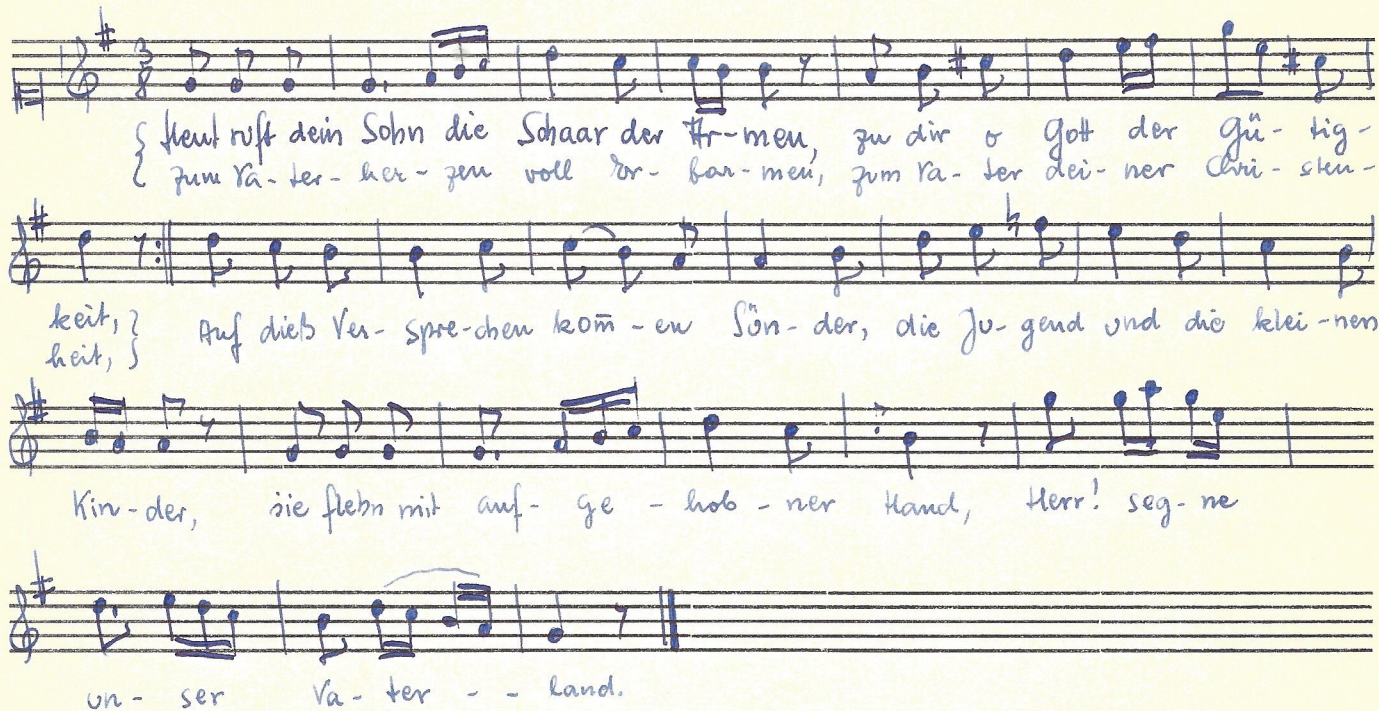 3
8
{ Heut ruft dein Sohn die Schaar der Ar-men, zu dir o Gott der Gü-tig-
{ zum Va-ter-her-zen voll Er-bar-men, zum Va-ter dei-ner Chri-sten-
keit, } Auf dieß Ver-spre-chen kom̄-en Sün-der, die Ju-gend und die klei-nen
heit, }
Kin-der, sie flehn mit auf-ge-hob-ner Hand, Herr! seg-ne
un-ser Va-ter--land.